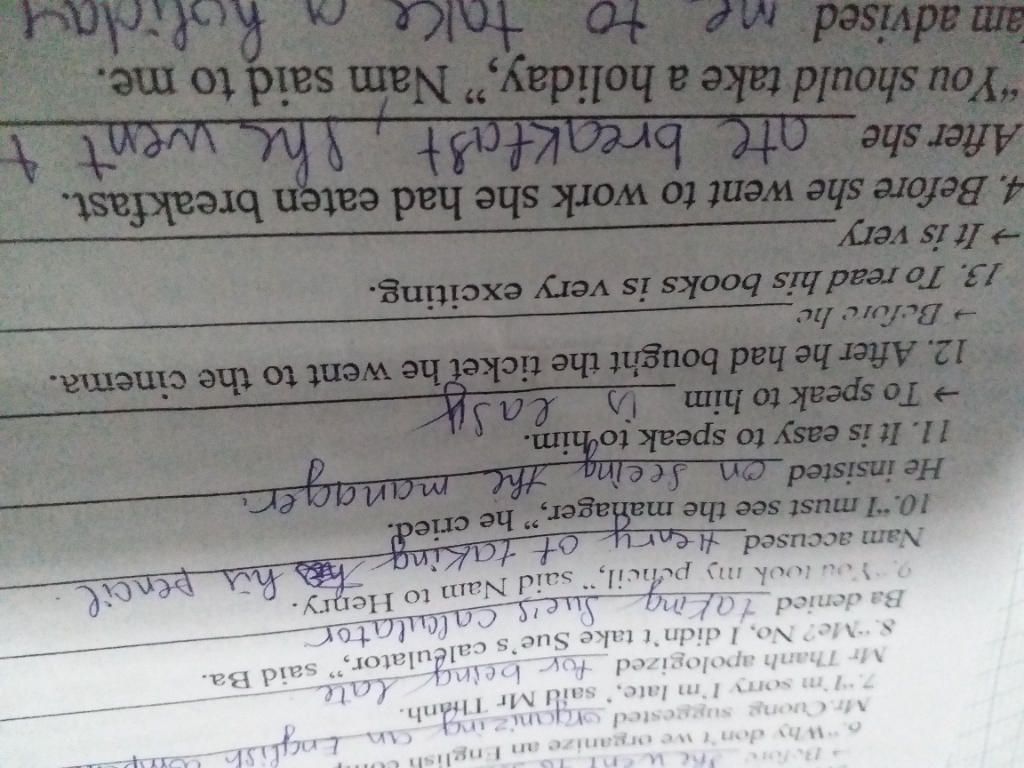 → Before she went to
6. "Why don't we organize an English comp
Mr.Cuong suggested organizing an English comp
7. "I'm sorry I'm late,' said Mr Thanh.
Mr Thanh apologized for being late
8. "Me? No, I didn't take Sue's calculator," said Ba.
Ba denied taking Sue's calculator
9. "You took my pencil," said Nam to Henry.
Nam accused Henry of taking his pencil.
10. "I must see the manager," he cried.
He insisted on seeing the manager.
11. It is easy to speak to him.
→ To speak to him is easy
12. After he had bought the ticket he went to the cinema.
→ Before he
13. To read his books is very exciting.
→ It is very
4. Before she went to work she had eaten breakfast.
After she ate breakfast, she went t
"You should take a holiday," Nam said to me.
am advised me to take a holiday